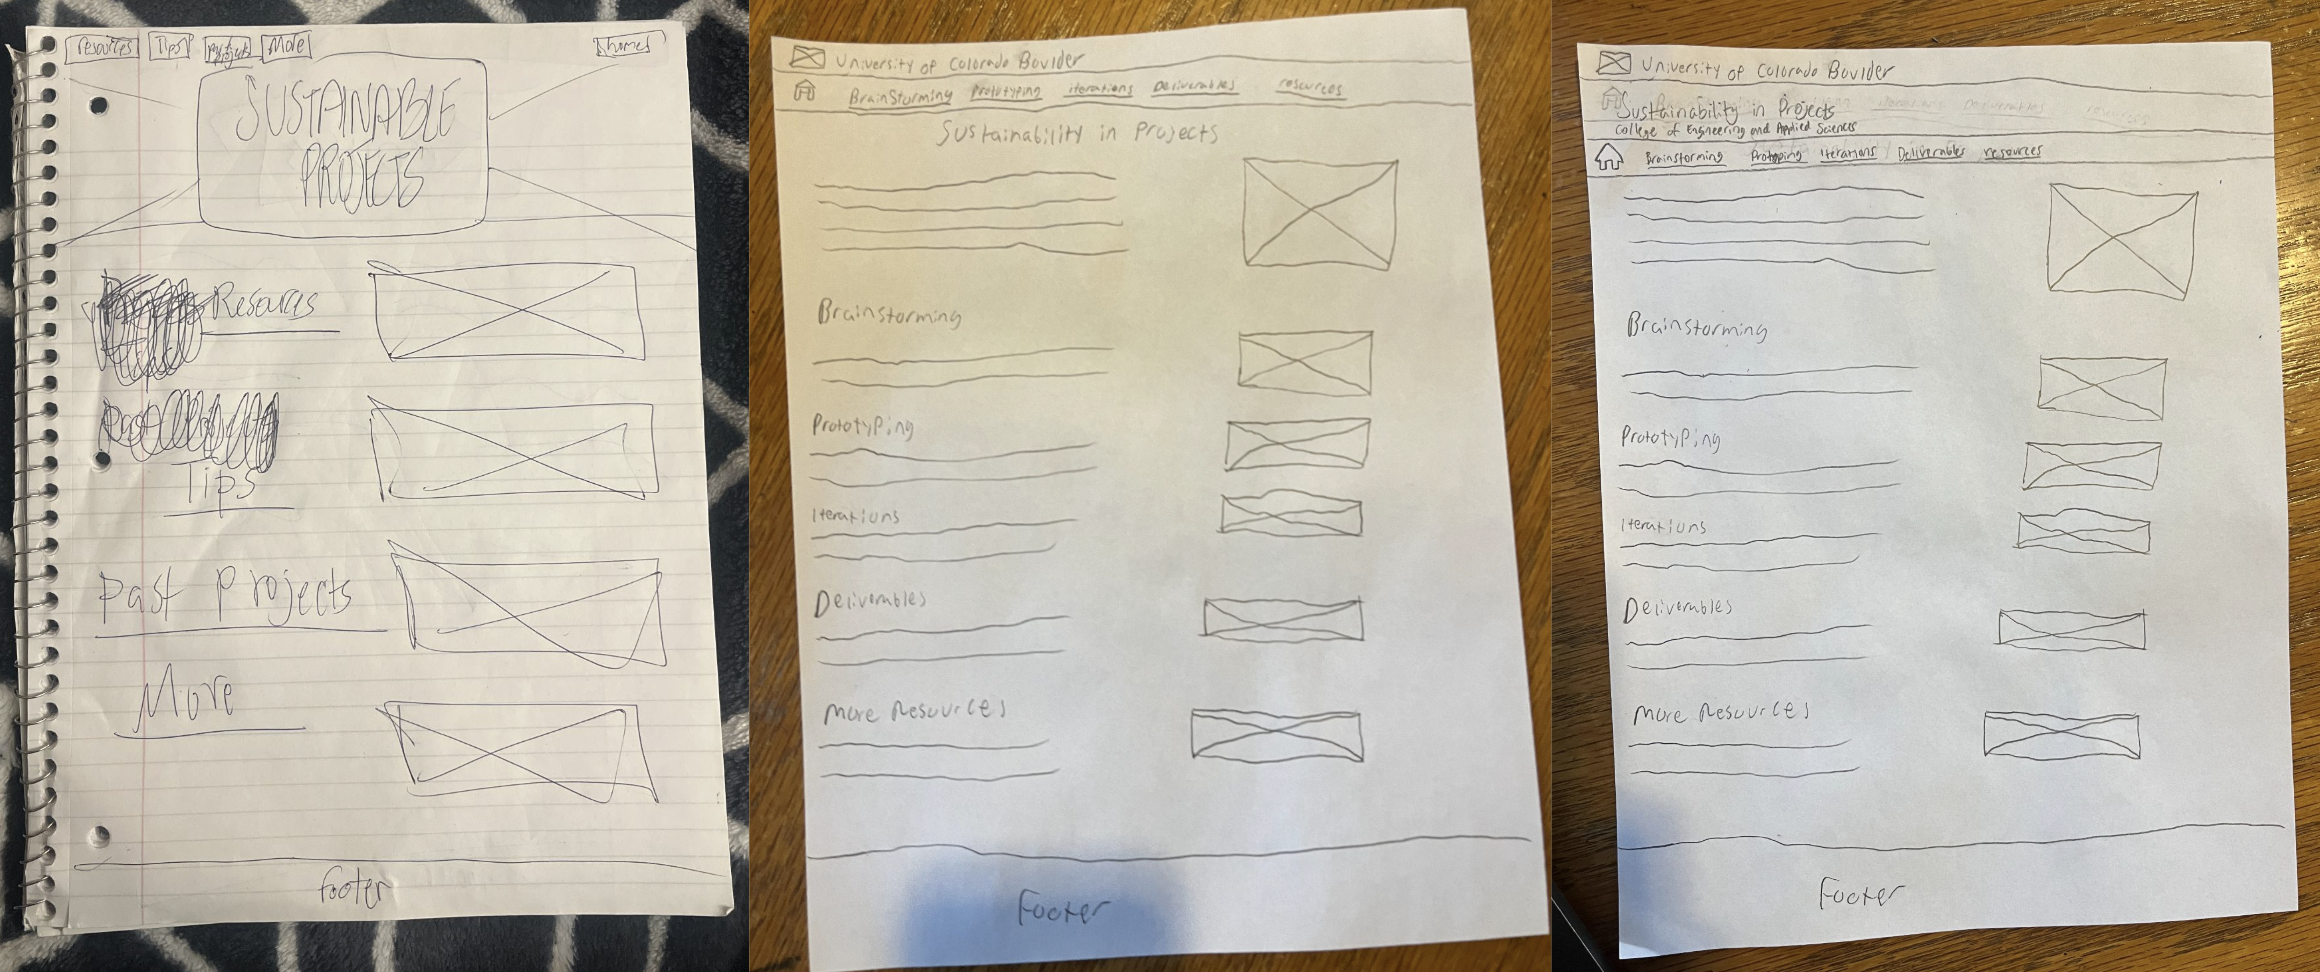 resources Tips projects More home
SUSTAINABLE
PROJECTS
Resources
Tips
Past Projects
More
footer
University of Colorado Boulder
BrainStorming Prototyping iterations Deliverables resources
Sustainability in Projects
Brainstorming
Prototyping
Iterations
Deliverables
More Resources
Footer
University of Colorado Boulder
Sustainability in Projects
College of Engineering and Applied Sciences
Brainstorming Protoyping Iterations Deliverables resources
Brainstorming
Prototyping
Iterations
Deliverables
More Resources
Footer